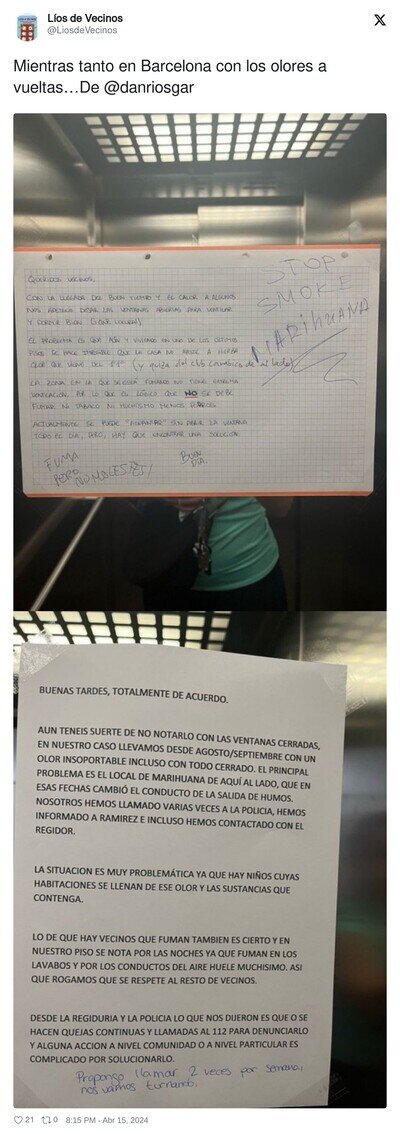 Líos de Vecinos
@LiosdeVecinos
Mientras tanto en Barcelona con los olores a
vueltas…De @danriosgar
STOP
SMOKE
MARIHUANA
QUERIDOS VECINOS,
CON LA LLEGADA DEL BUEN TIEMPO Y EL CALOR A ALGUNOS
NOS APETECE DEJAR LAS VENTANAS ABIERTAS PARA VENTILAR
Y DORMIR BIEN (¡QUÉ LOCURA!)
EL PROBLEMA ES QUE AÚN Y VIVIENDO EN UNO DE LOS ÚLTIMOS
PISOS SE HACE IMPOSIBLE QUE LA CASA NO APESTE A HIERBA
OLOR QUE VIENE DEL (y quizá del club cannábico de al lado)
LA ZONA EN LA QUE SE ESTÁ FUMANDO NO TIENE EXTREMA
VENTILACIÓN, POR LO QUE ES LÓGICO QUE NO SE DEBE
FUMAR NI TABACO NI MUCHÍSIMO MENOS PORROS
ACTUALMENTE SE PUEDE "AGUANTAR" SIN ABRIR LA VENTANA
TODO EL DÍA, PERO, HAY QUE ENCONTRAR UNA SOLUCIÓN
FUMA
PERO NO MOLESTES!
BUEN
DÍA.
BUENAS TARDES, TOTALMENTE DE ACUERDO.
AUN TENEIS SUERTE DE NO NOTARLO CON LAS VENTANAS CERRADAS,
EN NUESTRO CASO LLEVAMOS DESDE AGOSTO/SEPTIEMBRE CON UN
OLOR INSOPORTABLE INCLUSO CON TODO CERRADO. EL PRINCIPAL
PROBLEMA ES EL LOCAL DE MARIHUANA DE AQUÍ AL LADO, QUE EN
ESAS FECHAS CAMBIÓ EL CONDUCTO DE LA SALIDA DE HUMOS.
NOSOTROS HEMOS LLAMADO VARIAS VECES A LA POLICIA, HEMOS
INFORMADO A RAMIREZ E INCLUSO HEMOS CONTACTADO CON EL
REGIDOR.
LA SITUACION ES MUY PROBLEMÁTICA YA QUE HAY NIÑOS CUYAS
HABITACIONES SE LLENAN DE ESE OLOR Y LAS SUSTANCIAS QUE
CONTENGA.
LO DE QUE HAY VECINOS QUE FUMAN TAMBIEN ES CIERTO Y EN
NUESTRO PISO SE NOTA POR LAS NOCHES YA QUE FUMAN EN LOS
LAVABOS Y POR LOS CONDUCTOS DEL AIRE HUELE MUCHISIMO. ASI
QUE ROGAMOS QUE SE RESPETE AL RESTO DE VECINOS.
DESDE LA REGIDURIA Y LA POLICIA LO QUE NOS DIJERON ES QUE O SE
HACEN QUEJAS CONTINUAS Y LLAMADAS AL 112 PARA DENUNCIARLO
Y ALGUNA ACCION A NIVEL COMUNIDAD O A NIVEL PARTICULAR ES
COMPLICADO POR SOLUCIONARLO.
Propongo llamar 2 veces por semana,
nos vamos turnando.
21 0 8:15 PM - Abr 15, 2024